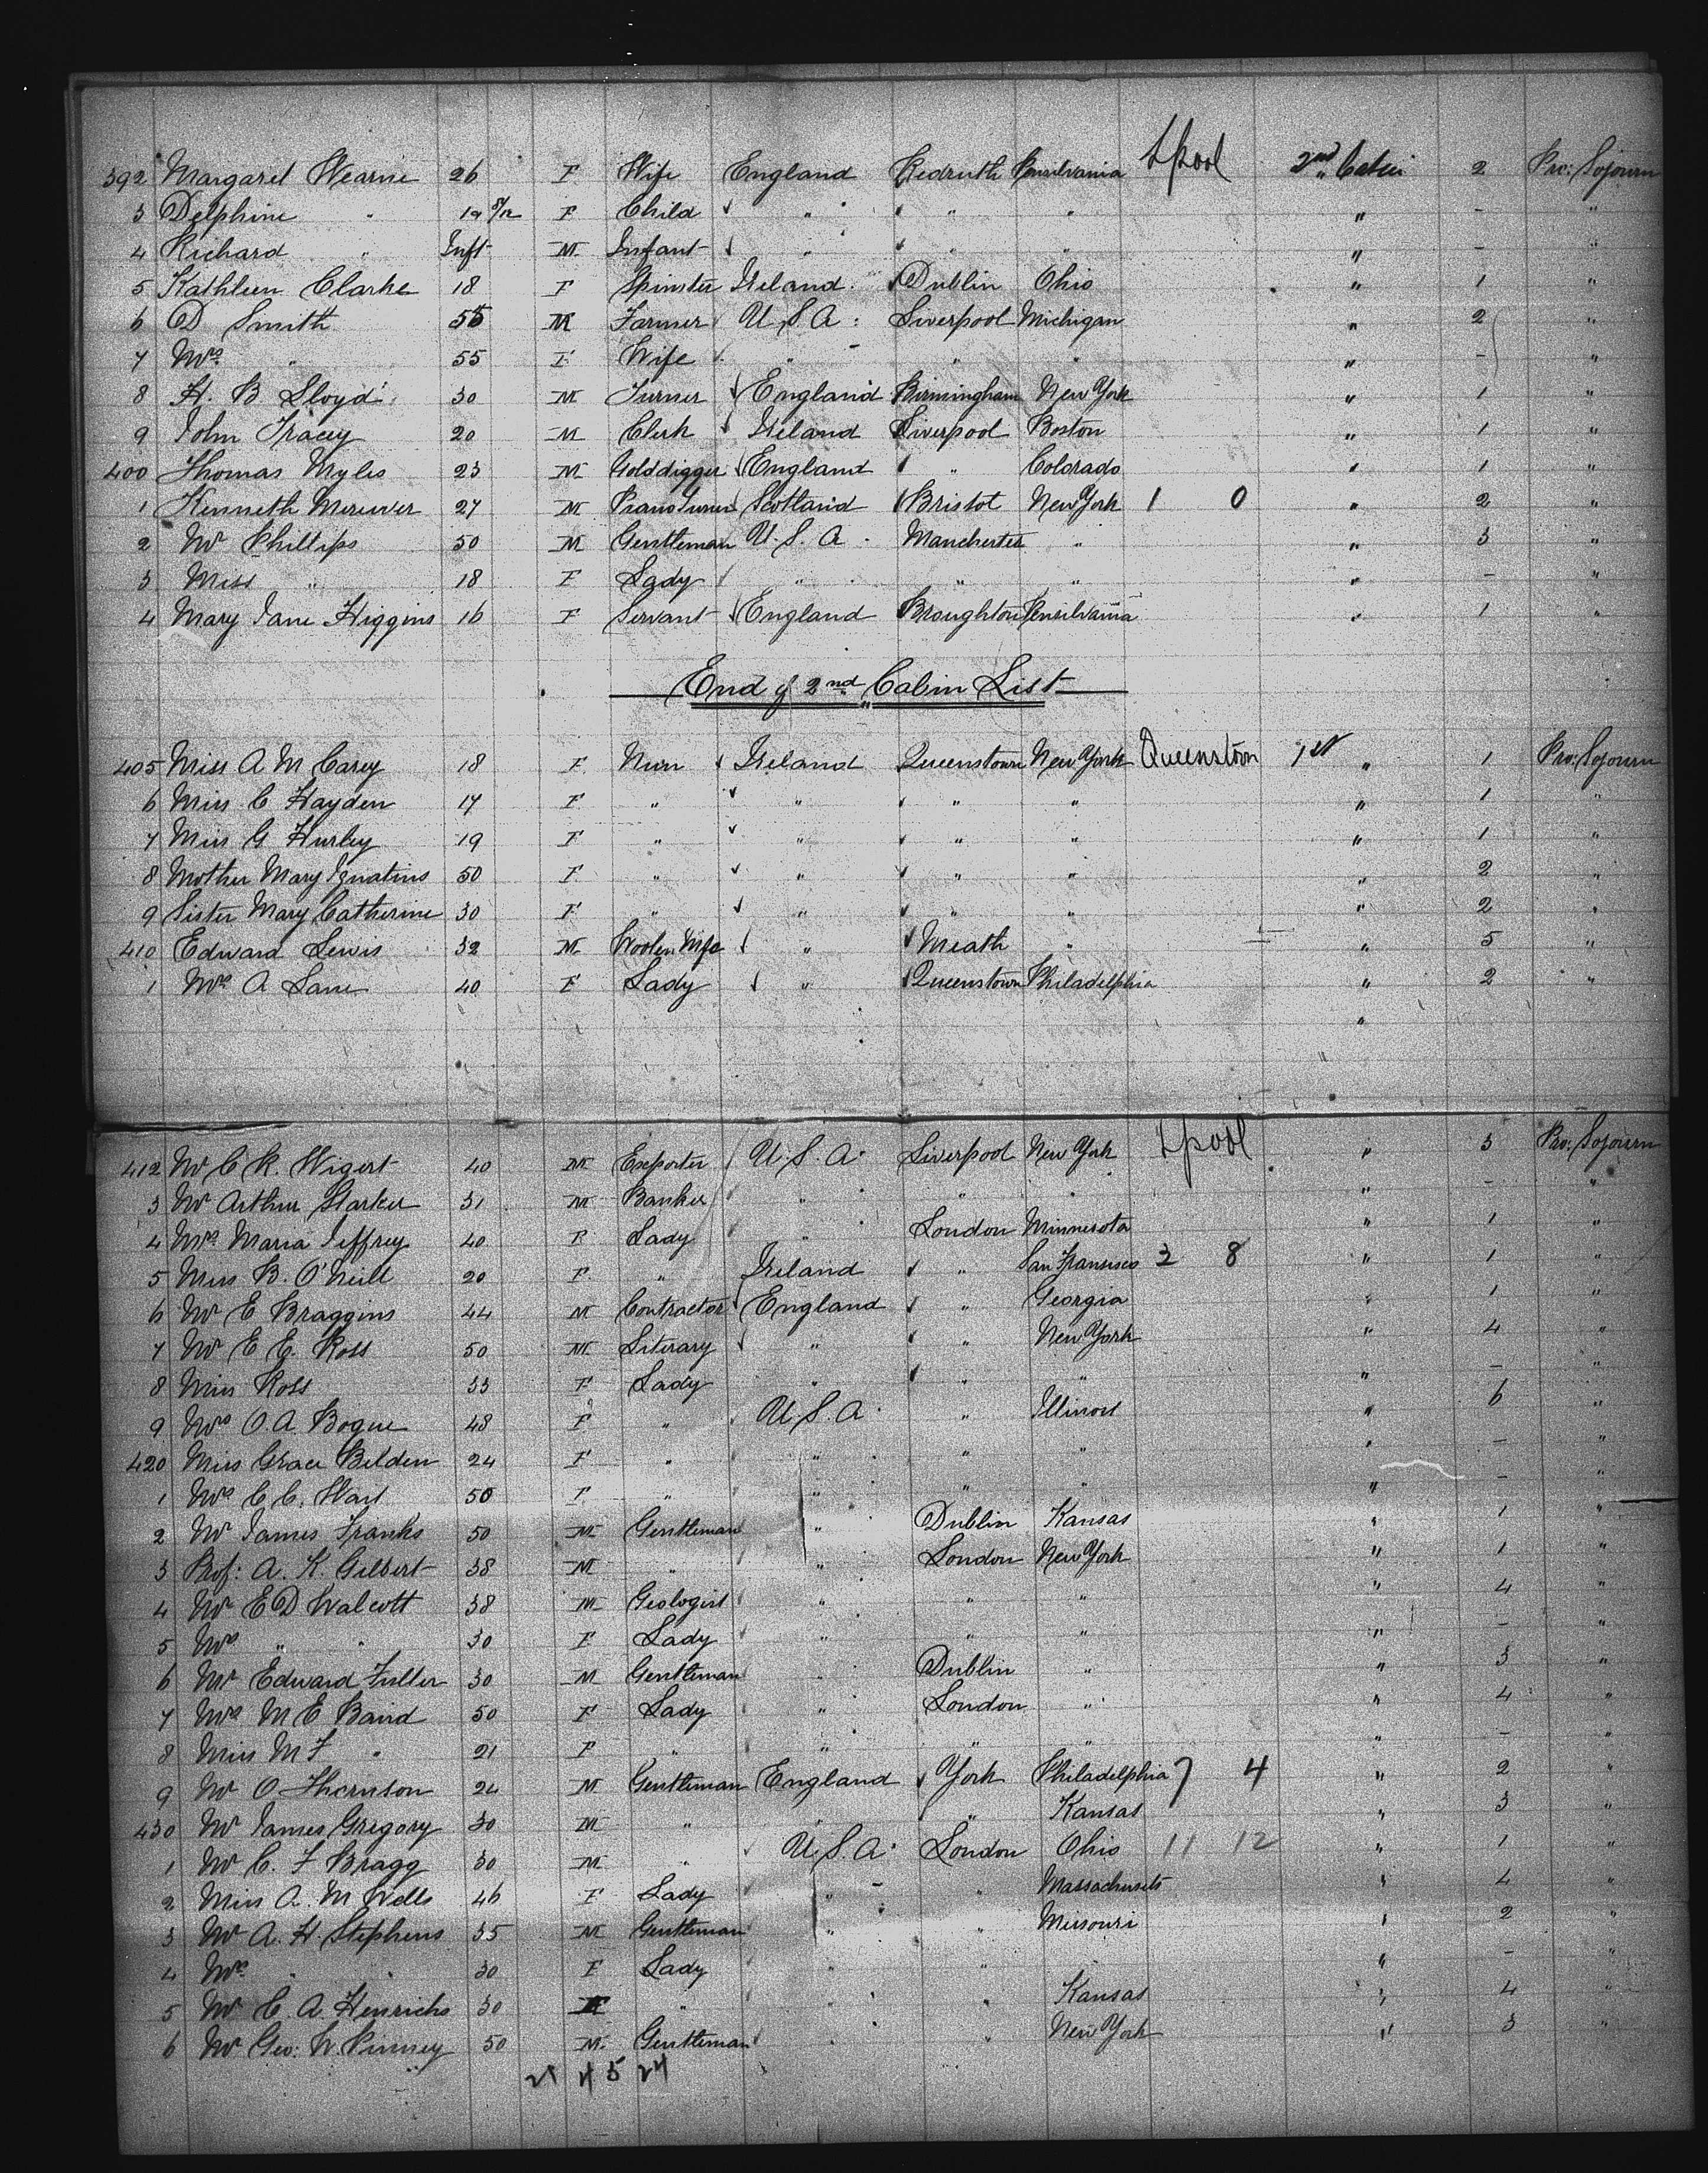 392 Margaret Hearne 26 F Wife England Redruth Pensilvania Lpool 2nd Cabin 2 Pro: Sojourn
3 Delphine " 1 9/12 F Child " " " " - "
4 Richard " Inft M Infant " " " " - "
5 Kathleen Clarke 18 F Spinster Ireland Dublin Ohio " 1 "
6 D Smith 55 M Farmer U.S.A. Liverpool Michigan " 2 "
7 Mrs " 55 F Wife " " " " - "
8 H. B Lloyd 30 M Turner England Birmingham New York " 1 "
9 John Tracey 20 M Clerk Ireland Liverpool Boston " 1 "
400 Thomas Myles 23 M Golddigger England " Colorado " 1 "
1 Kenneth 27 M Piano Tuner Scotland Bristol New York 1 0 " 2 "
2 Mr Phillips 50 M Gentleman U.S.A. Manchester " " 3 "
3 Miss " 18 F Lady " " " " - "
4 Mary Jane Higgins 16 F Servant England Broughton Pensilvania " 1 "
End of 2nd Cabin List
405 Miss A M Carey 18 F Nun Ireland Queenstown New York Queenstown 1st " 1 Pro: Sojourn
6 Miss C Hayden 17 F " " " " " 1 "
7 Miss G Hurley 19 F " " " " " 1 "
8 Mother Mary Ignatius 50 F " " " " " 2 "
9 Sister Mary Catherine 30 F " " " " " 2 "
410 Edward Lewis 32 M Woolen Mfc " Meath " " 5 "
1 Mrs A Lane 40 F Lady " Queenstown Philadelphia " 2 "
"
412 Mr C R. Wigert 40 M Exporter U.S.A. Liverpool New York Lpool " 3 Pro: Sojourn
3 Mr Arthur Starker 31 M Banker " " " " - "
4 Mrs Maria Jeffrey 40 F Lady " London Minnesota " 1 "
5 Miss B. O'Neill 20 F " Ireland " San Fransisco 3 8 " 1 "
6 Mr E Braggins 44 M Contractor England " Georgia " 1 "
7 Mr E E. Ross 50 M Literary " " New York " 4 "
8 Miss Ross 33 F Lady " " " " - "
9 Mrs O. A. Bogue 48 F " U.S.A. " Illinois " 6 "
420 Miss Grace Belden 24 F " " " " " - "
1 Mrs C C. Hart 50 F " " " " " - "
2 Mr James Franks 50 M Gentleman " Dublin Kansas " 1 "
3 Prof: A. K. Gilbert 38 M " " London New York " 1 "
4 Mr E D Walcott 38 M Geologist " " " " 4 "
5 Mrs " " 30 F Lady " " " " - "
6 Mr Edward Fuller 30 M Gentleman " Dublin " " 3 "
7 Mrs M E Baird 50 F Lady " London " " 4 "
8 Miss M F " 21 F " " " " " - "
9 Mr O Thornton 24 M Gentleman England York Philadelphia 7 4 " 2 "
430 Mr James Gregory 30 M " " " Kansas " 3 "
1 Mr C. F Bragg 30 M " U.S.A. London Ohio 11 12 " 1 "
2 Miss A. M Wells 46 F Lady " " Massachusets " 4 "
3 Mr A. H. Stephens 35 M Gentleman " " Missouri " 2 "
4 Mrs " " 30 F Lady " " " - "
5 Mr C. A. Henrichs 30 " " " Kansas " 4 "
6 Mr Geo: W. Pinney 50 M Gentleman " " New York " 3 "
21 4 5 24